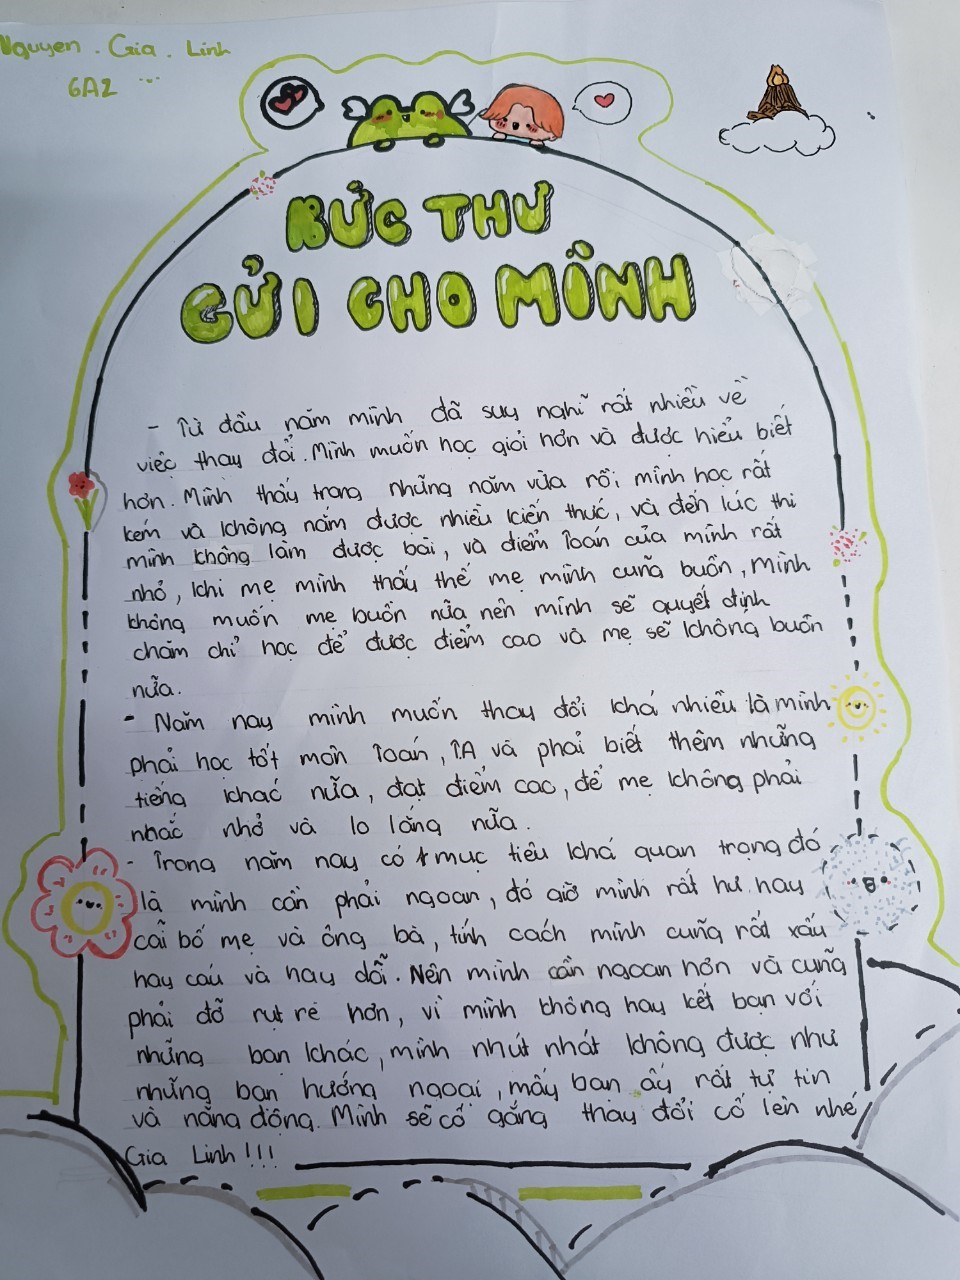 Nguyen . Gia . Linh
6A2
BỨC THƯ
GỬI CHO MÌNH
- Từ đầu năm mình đã suy nghĩ rất nhiều về
việc thay đổi. Mình muốn học giỏi hơn và được hiểu biết
hơn. Mình thấy trong những năm vừa rồi, mình học rất
kém và không nắm được nhiều kiến thức, và đến lúc thi
mình không làm được bài, và điểm Toán của mình rất
nhỏ, khi mẹ mình thấy thế mẹ mình cũng buồn, mình
không muốn mẹ buồn nữa nên mình sẽ quyết định
chăm chỉ học để được điểm cao và mẹ sẽ không buồn
nữa.
- Năm nay mình muốn thay đổi khá nhiều là mình
phải học tốt môn Toán, TA và phải biết thêm những
tiếng khác nữa, đạt điểm cao, để mẹ không phải
nhắc nhở và lo lắng nữa.
- Trong năm nay có 1 mục tiêu khá quan trọng đó
là mình cần phải ngoan, đó giờ mình rất hư hay
cãi bố mẹ và ông bà, tính cách mình cũng rất xấu
hay cáu và hay dỗi. Nên mình cần ngoan hơn và cũng
phải đỡ rụt rè hơn, vì mình không hay kết bạn với
những bạn khác, mình nhút nhát không được như
những bạn hướng ngoại, mấy bạn ấy rất tự tin
và năng động. Mình sẽ cố gắng thay đổi cố lên nhé
Gia Linh!!!